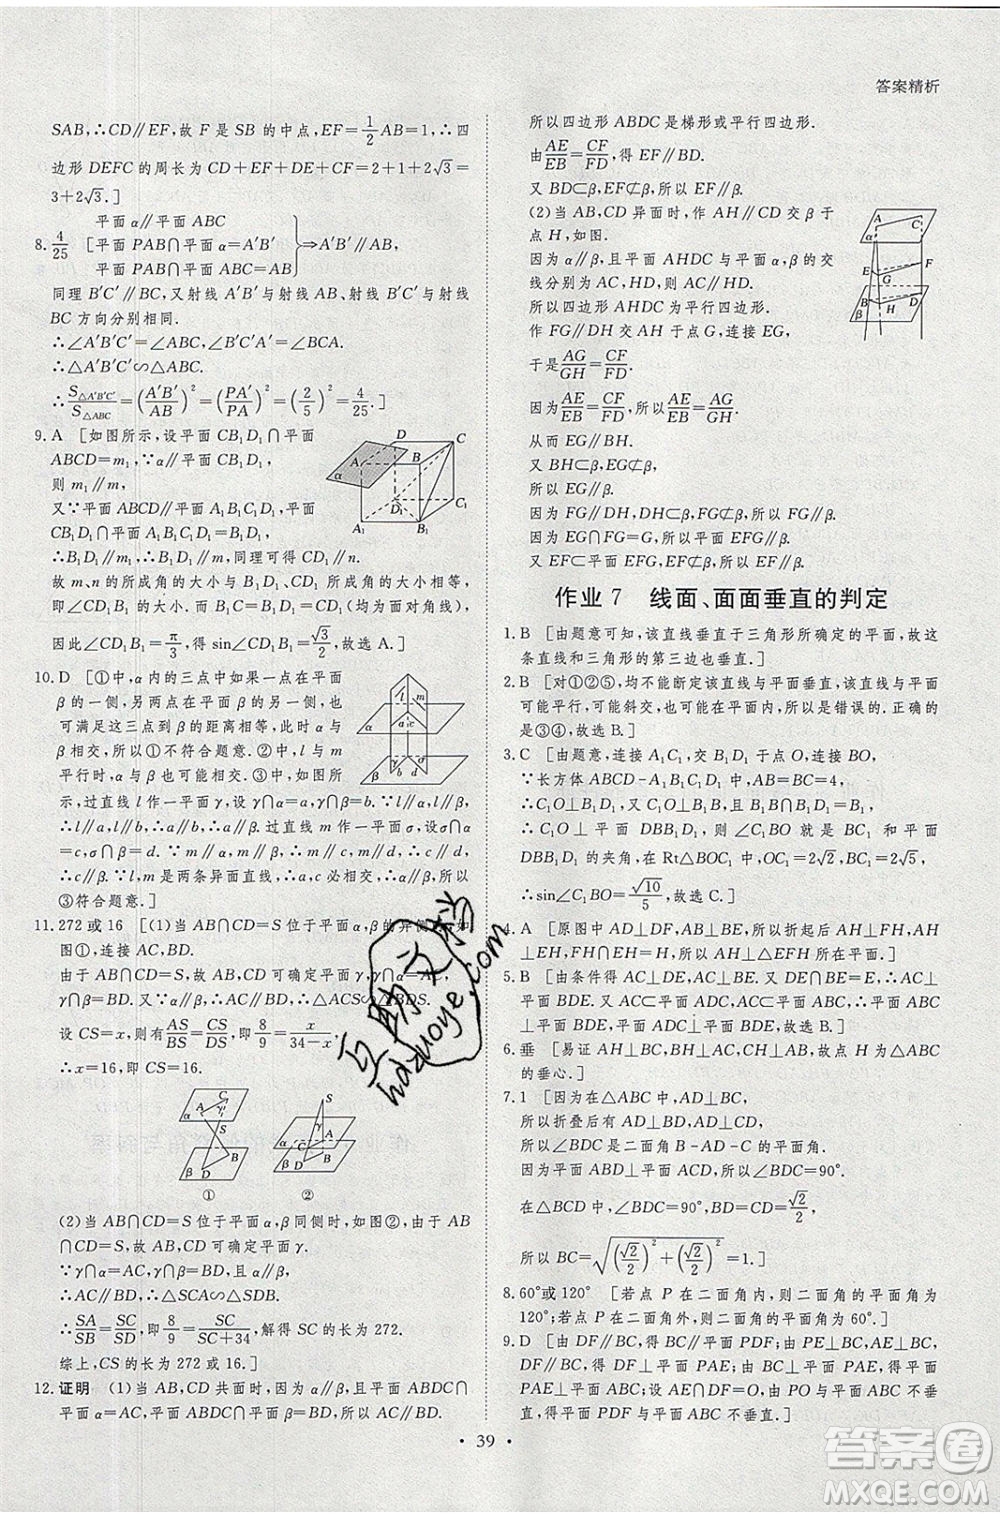 答案精析
SAB,∴CD∥EF,故 F 是 SB 的中点,EF=1/2AB=1,∴四
边形 DEFC 的周长为 CD+EF+DE+CF=2+1+2√3=
3+2√3.]
8.4/25 [平面α∥平面ABC
平面 PAB∩平面α=A′B′
平面 PAB∩平面 ABC=AB}⇒A′B′∥AB,
同理 B′C′∥BC,又射线 A′B′与射线 AB,射线 B′C′与射线
BC 方向分别相同.
∴∠A′B′C′=∠ABC,同理∠B′C′A′=∠BCA.
∴△A′B′C′∽△ABC.
∴S△A′B′C′/S△ABC=(A′B′/AB)²=(PA′/PA)²=(2/5)²=4/25.]
9.A [如图所示,设平面 CB₁D₁∩平面
ABCD=m₁,∵α∥平面 CB₁D₁,
则 m₁∥m,
又∵平面 ABCD∥平面 A₁B₁C₁D₁,
CB₁D₁∩平面 A₁B₁C₁D₁=B₁D₁,
∴B₁D₁∥m₁,∴B₁D₁∥m,同理可得 CD₁∥n.
故 m、n 的所成角的大小与 B₁D₁、CD₁ 所成角的大小相等,
即∠CD₁B₁ 的大小.而 B₁C=B₁D₁=CD₁(均为面对角线),
因此∠CD₁B₁=π/3,得 sin∠CD₁B₁=√3/2,故选 A.]
10.D [①中,α 内的三点中如果在平面
β 的两侧,其中两点在一侧,另一点在另一侧,
β 相交,所以①不符合题意.②中,l 与 m
平行时,α 与 β 也可能相交.③中,如图所
示,过直线 l 作一平面γ,设γ∩α=a,γ∩β=b.∵l∥α,l∥β,
∴l∥a,l∥b,∴a∥b,∴a∥β.过直线 m 作一平面σ,设σ∩α
=c,σ∩β=d.∵m∥α,m∥β,∴m∥c,m∥d,∴c∥d,
∴c∥β.∵l,m 是两条异面直线,∴a,c 必相交,∴α∥β.所以
③符合题意.]
11.272 或 16 [(1)当 AB∩CD=S 位于平面 α,β 的异侧时,如
图①,连接 AC,BD.
由于 AB∩CD=S,可确定平面
γ∩β=BD.又∵α∥β,∴AC∥BD,∴△ACS∽△BDS.
设 CS=x,则有AS/BS=CS/DS,即8/9=x/(34-x),
∴x=16,即 CS=16.
A C S α D B β ①
S A C α γ D B β ②
(2)当 AB∩CD=S 位于平面 α,β 同侧时,如图②,由于 AB
∩CD=S,故由 AB,CD 可确定平面 γ.
∵γ∩α=AC,γ∩β=BD,α∥β,∴△SCA∽△SDB,
∴SA/SB=SC/SD,即8/9=SC/(SC+34),∴SC=272.
综上,CS 的长为 272 或 16.]
12.证明 (1)当 AB,CD 共面时,因为 α∥β,且平面 ABDC∩
平面 α=AC,平面 ABDC∩平面 β=BD,所以 AC∥BD,
所以四边形 ABDC 是梯形或平行四边形.
由AE/EB=CF/FD,得 EF∥BD.
又 BD⊂β,EF⊄β,所以 EF∥β.
(2)当 AB,CD 异面时,作 AH∥CD 交 β 于
点 H,如图.
因为 α∥β,且平面 AHDC 与平面 α,β 的交
线分别为 AC,HD,所以 AC∥HD.
所以四边形 AHDC 为平行四边形.
作 FG∥DH 交 AH 于点 G,连接 EG,
于是AG/GH=CF/FD.
因为AE/EB=CF/FD,所以AE/EB=AG/GH.
从而 EG∥BH.
又 BH⊂β,EG⊄β,
所以 EG∥β.
因为 FG∥DH,DH⊂β,FG⊄β,所以 FG∥β.
因为 EG∩FG=G,所以平面 EFG∥β.
又 EF⊂平面 EFG,EF⊄β,所以 EF∥β.
作业 7 线面、面面垂直的判定
1.B [由题意可知,该直线垂直于三角形所确定的平面,故这
条直线和三角形的第三边也垂直.]
2.B [对①②⑤,均不能断定该直线与平面垂直,该直线与平面可
能平行,可能斜交,也可能在平面内,所以是错误的.正确
的是③④,故选 B.]
3.C [由题意,连接 A₁C₁,交 B₁D₁ 于点 O,连接 BO,
∵长方体 ABCD-A₁B₁C₁D₁ 中,AB=BC=4,
∴C₁O⊥B₁D₁,易得C₁O⊥平面 DBB₁D₁,
∴C₁O⊥平面 DBB₁D₁,则∠C₁BO 就是 BC₁ 与平面
DBB₁D₁ 的夹角,在 Rt△BOC₁ 中,C₁O=2√2,BC₁=2√5,
∴sin∠C₁BO=√10/5,故选 C.]
4.A [原图中 AD⊥DF,AB⊥BE,所以折起后 AH⊥FH,AH
⊥EH,FH∩EH=H,所以 AH⊥平面 EFH.]
5.B [由条件得 AC⊥DE,AC⊥BE,又 DE∩BE=E,∴AC
⊥平面 BDE,又 AC⊂平面 ADC,AC⊂平面 ABC,故平面
ABC⊥平面 BDE,平面 ADC⊥平面 BDE,故选 B.]
6.垂 [易证 AH⊥BC,BH⊥AC,CH⊥AB,故点 H 为△ABC
的垂心.]
7.1 [因为在△ABC 中,AD⊥BC,
所以折叠后有 AD⊥BD,AD⊥CD,
所以∠BDC 是二面角 B-AD-C 的平面角.
因为平面 ABD⊥平面 ACD,所以∠BDC=90°.
在△BCD 中,∠BDC=90°,BD=CD=√2/2,
所以 BC=√((√2/2)²+(√2/2)²)=1.]
8.60°或 120° [若点 P 在二面角内,则二面角的平面角为
120°;若点 P 在二面角外,则二面角的平面角为 60°.]
9.D [由 DF∥BC,得 BC∥平面 PDF;由 PE⊥BC,AE⊥BC,
得 BC⊥平面 PAE,所以 DF⊥平面 PAE;由 BC⊥平面
PAE,得平面 ABC⊥平面 PAE;由 PO 与平面 ABC 垂
直,得平面 PDF 与平面 ABC 不垂直,故选 D.]
• 39 •
互助文档
hdzuoye.com
答案圈
MXQE.COM